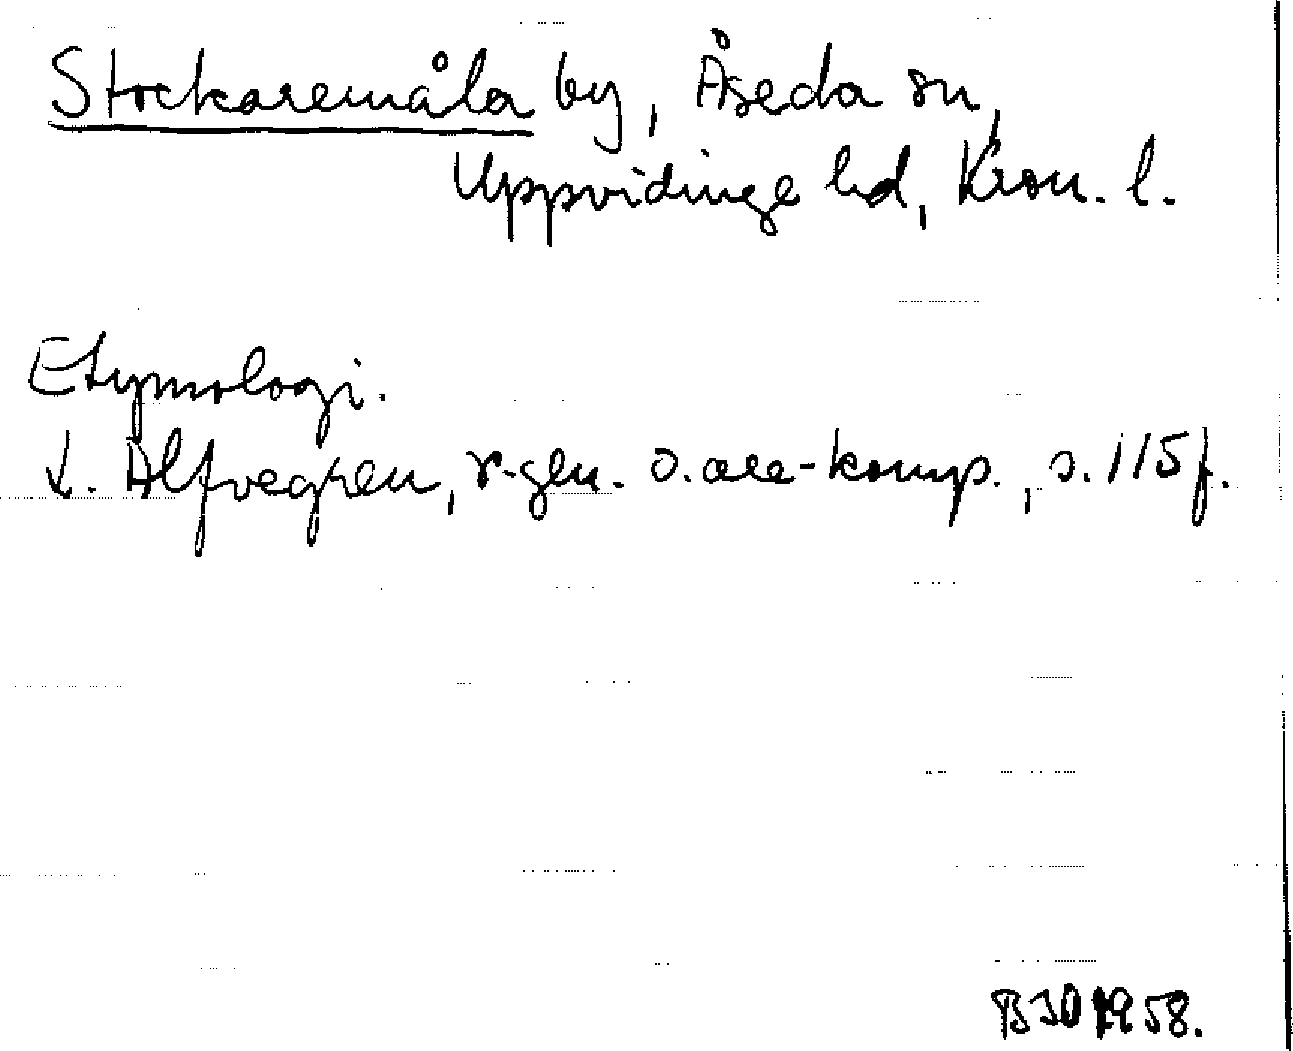 Stockaremåla by, Åseda sn,
Uppvidinge hd, Kron. l.
Etymologi.
L. Alfvegren, r-gen. o. are-komp., s. 115 f.
BJO 1958.